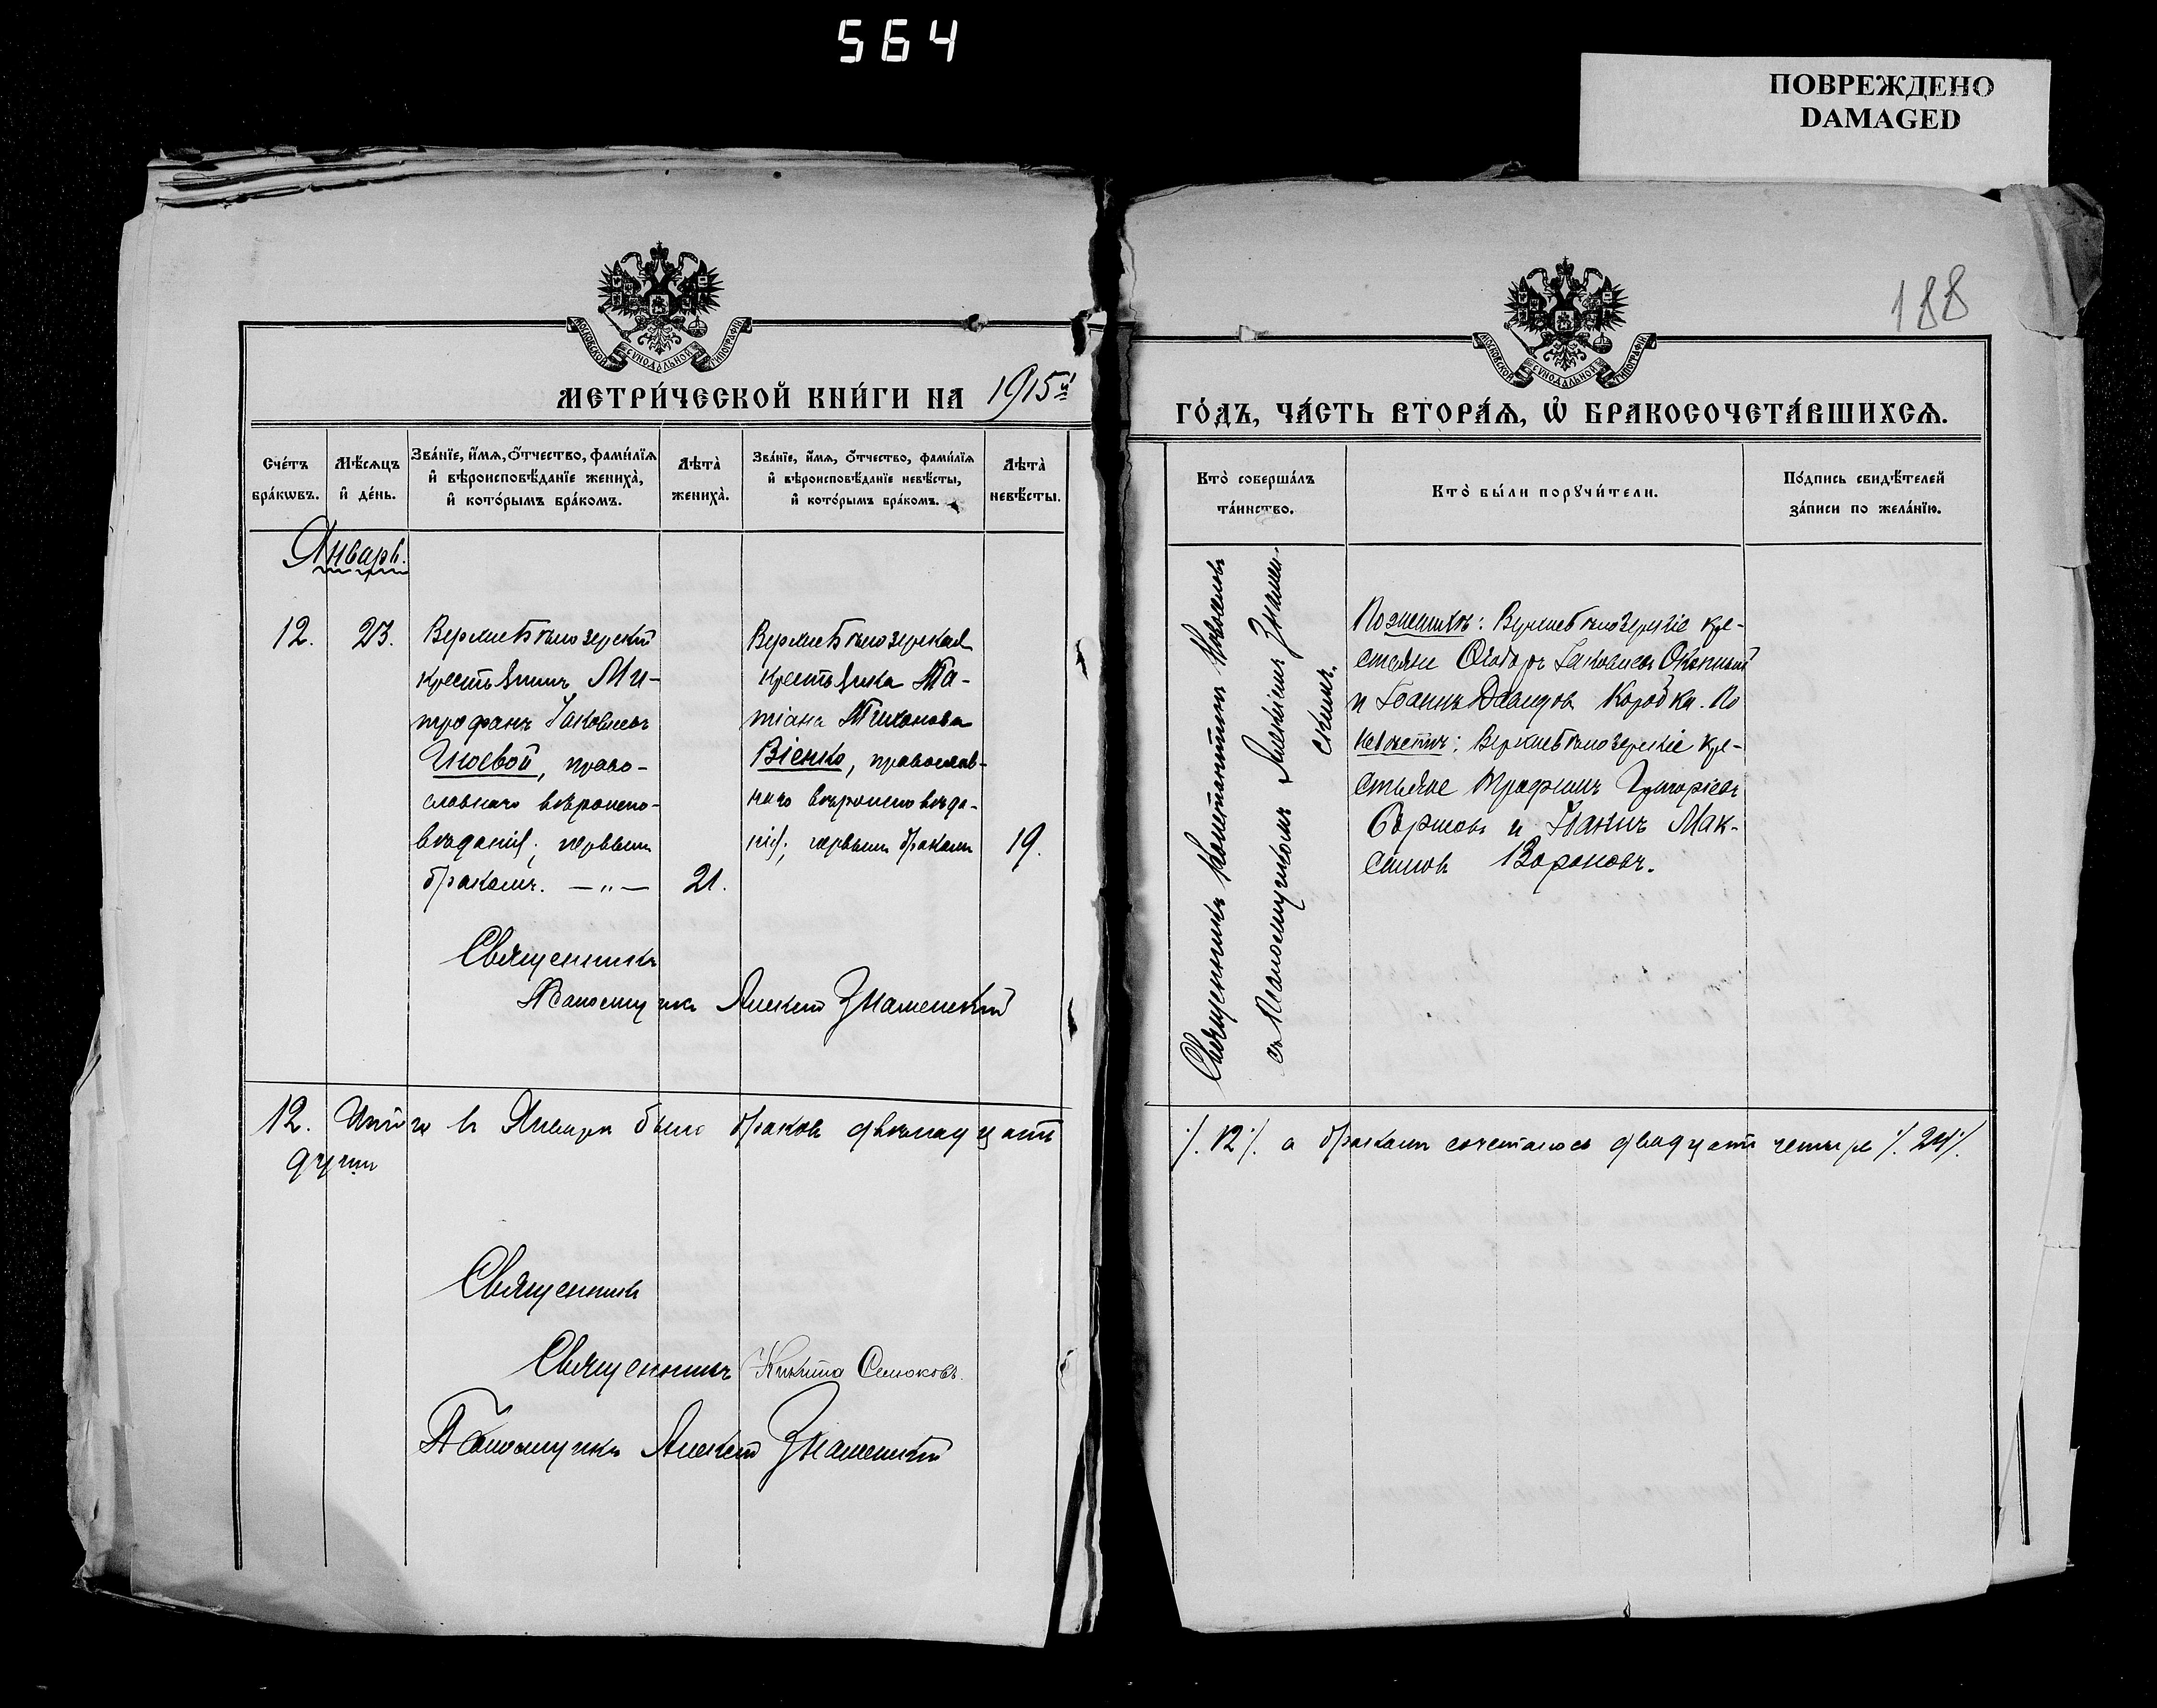 564
ПОВРЕЖДЕНО
DAMAGED
188
МОСКОВСКОЙ СѴНОДАЛЬНОЙ ТИПОГРАФІИ
МОСКОВСКОЙ СѴНОДАЛЬНОЙ ТИПОГРАФІИ
МЕТРИ́ЧЕСКОЙ КНИ́ГИ НА 1915й
ГО́ДЪ, ЧА́СТЬ ВТОРА́Ѧ, Ѡ҆ БРАКОСОЧЕТА́ВШИХСѦ.
Сче́тъ
бра́кѡвъ.
Мѣ́сѧцъ
и҆ де́нь.
Зва́нїе, и҆́мѧ, ѻ҆́тчество, фами́лїѧ
и҆ вѣроисповѣ́данїе жениха̀,
и҆ кото́рымъ бра́комъ.
Лѣта̀
жениха̀.
Зва́нїе, и҆́мѧ, ѻ҆́тчество, фами́лїѧ
и҆ вѣроисповѣ́данїе невѣ́сты,
и҆ кото́рымъ бра́комъ.
Лѣта̀
невѣ́сты.
Кто̀ соверша́лъ
та́инство.
Кто̀ бы́ли порꙋчи́тели.
По́дпись свидѣ́телей
за́писи по жела́нїю.
Январь.
12.
23.
Верхнебѣлозерскій
крестьянинъ Ми-
трофанъ Іаковлевъ
Гноевой, право-
славнаго вѣроиспо-
вѣданія; первымъ
бракомъ. — „ —
21.
Верхнебѣлозерская
крестьянка Та-
тіана Тихонова
Віенко, православ-
наго вѣроисповѣда-
нія; первымъ бракомъ
19.
Священникъ Константинъ
съ псаломщикомъ Алексіемъ Знамен-
скимъ.
По женихѣ: Верхнебѣлозерскіе кре-
стьяне Ѳеодоръ Іаковлевъ
и Іоаннъ Давидовъ Коробка. По
невѣстѣ: Верхнебѣлозерскіе кре-
стьяне Трофимъ Григорьевъ
и Іоаннъ Мак-
симовъ Вороновъ.
Священникъ
Псаломщикъ Алексій Знаменскій
12. Итого въ Январѣ было браковъ двѣнадцать
·/. 12 ·/. а бракомъ сочеталось двадцать четыре ·/. 24 ·/.
души
Священникъ
Священникъ Никита Семоковъ.
Псаломщикъ Алексій Знаменскій